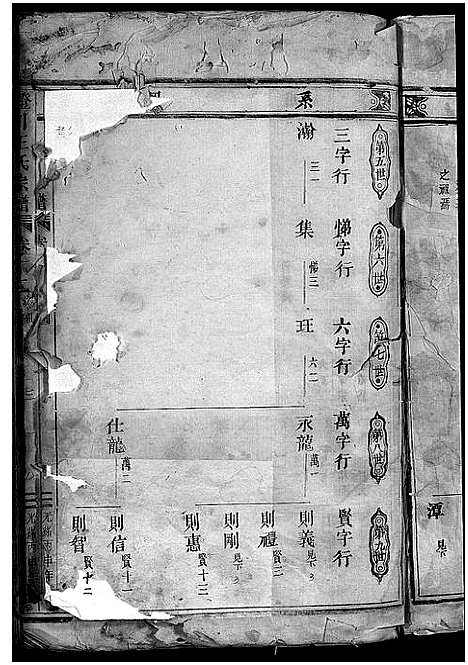 之
系
第五世
三字行
瀚 三一
第六世
悌字行
集 悌三
第七世
六字行
玨 六一
第八世
萬字行
永龍 萬一
仕龍 萬二
第九世
賢字行
則義 見下
則禮 賢三
則剛 見下
則惠 賢十三
則信 賢十一
則智 賢十二
潭 見下
氏宗譜
光緒丙申年